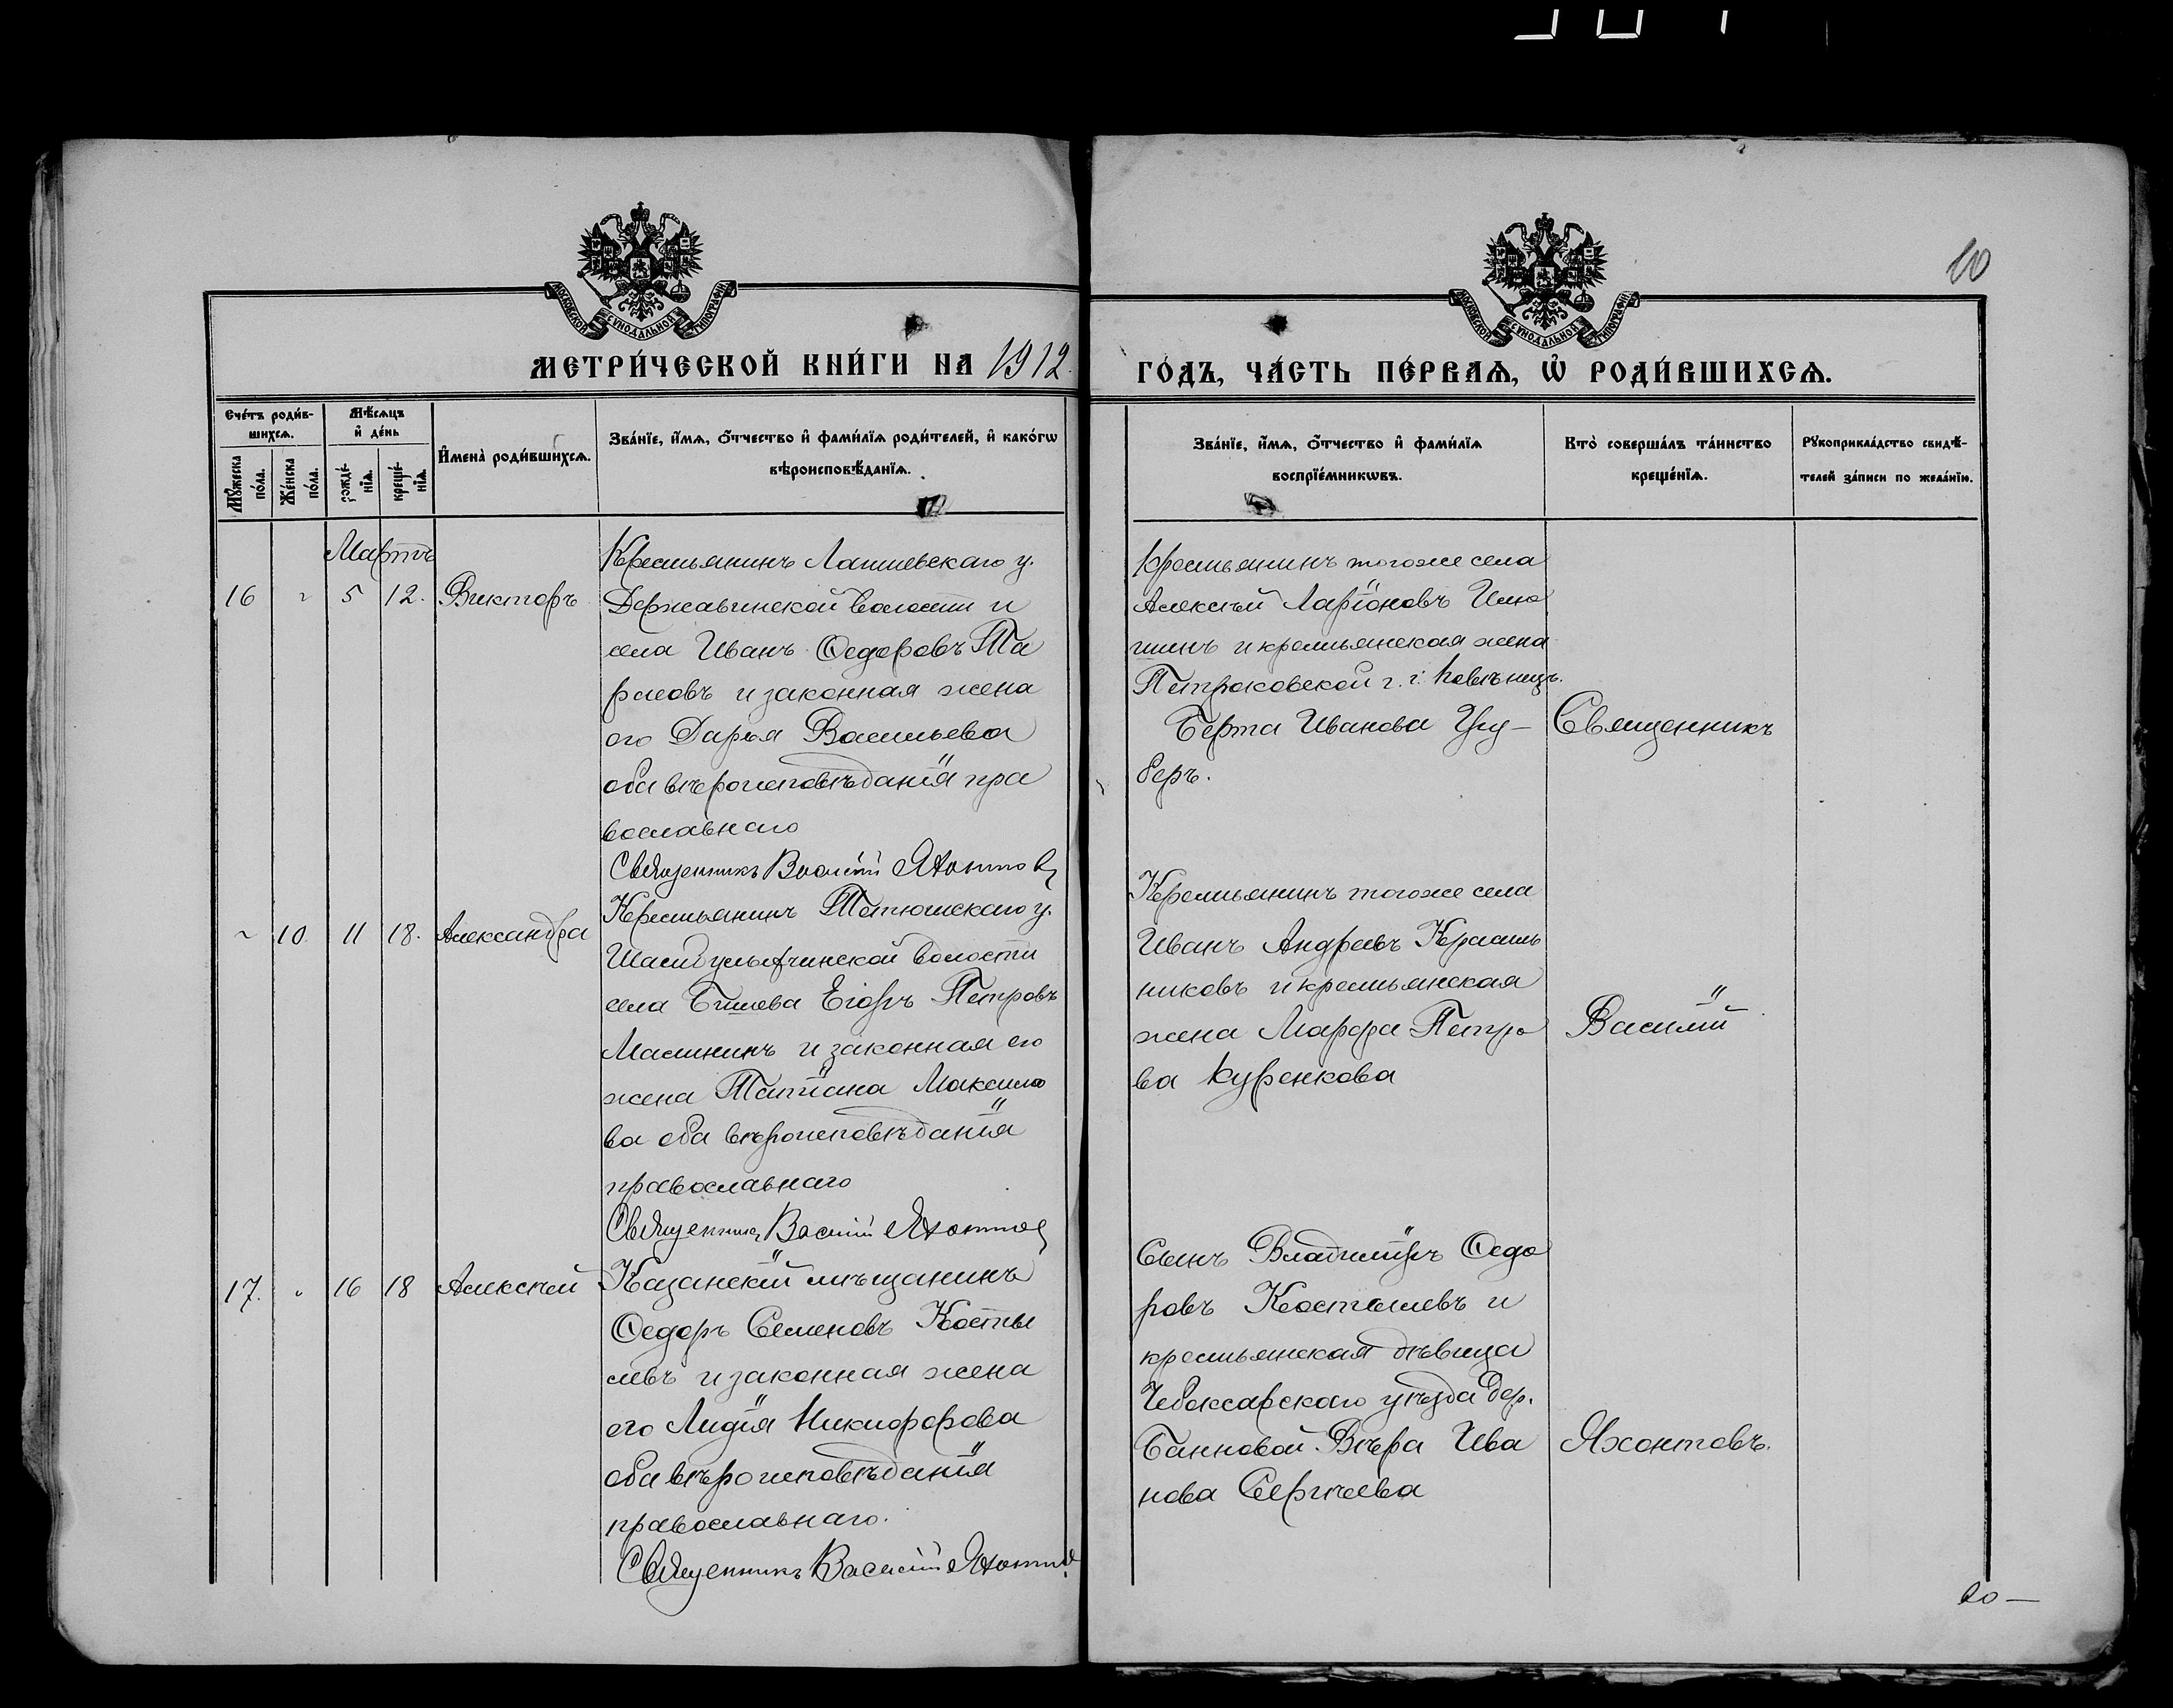 10
МОСКОВСКОЙ СУНОДАЛЬНОЙ ТИПОГРАФІИ
МОСКОВСКОЙ СУНОДАЛЬНОЙ ТИПОГРАФІИ
МЕТРИ́ЧЕСКОЙ КНИ́ГИ НА 1912
ГО́ДЪ, ЧА́СТЬ ПЕ́РВАѦ, Ѡ҆ РОДИ́ВШИХСѦ.
Счетъ роди́в-
шихсѧ.
Мужеска
по́ла.
Же́нска
по́ла.
Мѣ́сѧцъ
и҆ де́нь
рожде́-
нїѧ.
креще́-
нїѧ.
И҆мена̀ роди́вшихсѧ.
Зва́нїе, и҆́мѧ, ѻ҆́тчество и҆ фами́лїѧ роди́телей, и҆ како́гѡ
вѣроисповѣ́данїѧ.
Зва́нїе, и҆́мѧ, ѻ҆́тчество и҆ фами́лїѧ
воспрїе́мникѡвъ.
Кто̀ соверша́лъ та́инство
креще́нїѧ.
Рукоприкла́дство свидѣ́-
телей за́писи по жела́нїю.
Мартъ
16 " 5 12. Викторъ
Крестьянинъ Лаишевскаго у.
Державинской волости и
села Иванъ Ѳедоровъ Та
расовъ и законная жена
его Дарья Васильева
оба вѣроисповѣданія пра
вославнаго
Священникъ Василій Яхонтовъ
Крестьянинъ того же села
Алексѣй Ларіоновъ Илю
шинъ и крестьянская жена
Петроковской г.
Берта Иванова Гру-
беръ.
Священникъ
" 10 11 18. Александра
Крестьянинъ Тетюшскаго у.
волости
села Егоръ Петровъ
и законная его
жена Татіана Максимо
ва оба вѣроисповѣданія
православнаго
Священникъ Василій Яхонтовъ
Крестьянинъ того же села
Иванъ Андреевъ Красиль
никовъ и крестьянская
жена Марфа Петро
ва Куренкова
Василій
17. " 16 18 Алексѣй
Казанскій мѣщанинъ
Ѳедоръ Семеновъ Косты
левъ и законная жена
его Лидія Никифорова
оба вѣроисповѣданія
православнаго.
Священникъ Василій Яхонтовъ
Сынъ Владиміръ Ѳедо
ровъ Костылевъ и
крестьянская дѣвица
Чебоксарскаго уѣзда дер.
Банновой Вѣра Ива
нова Сергѣева
Яхонтовъ.